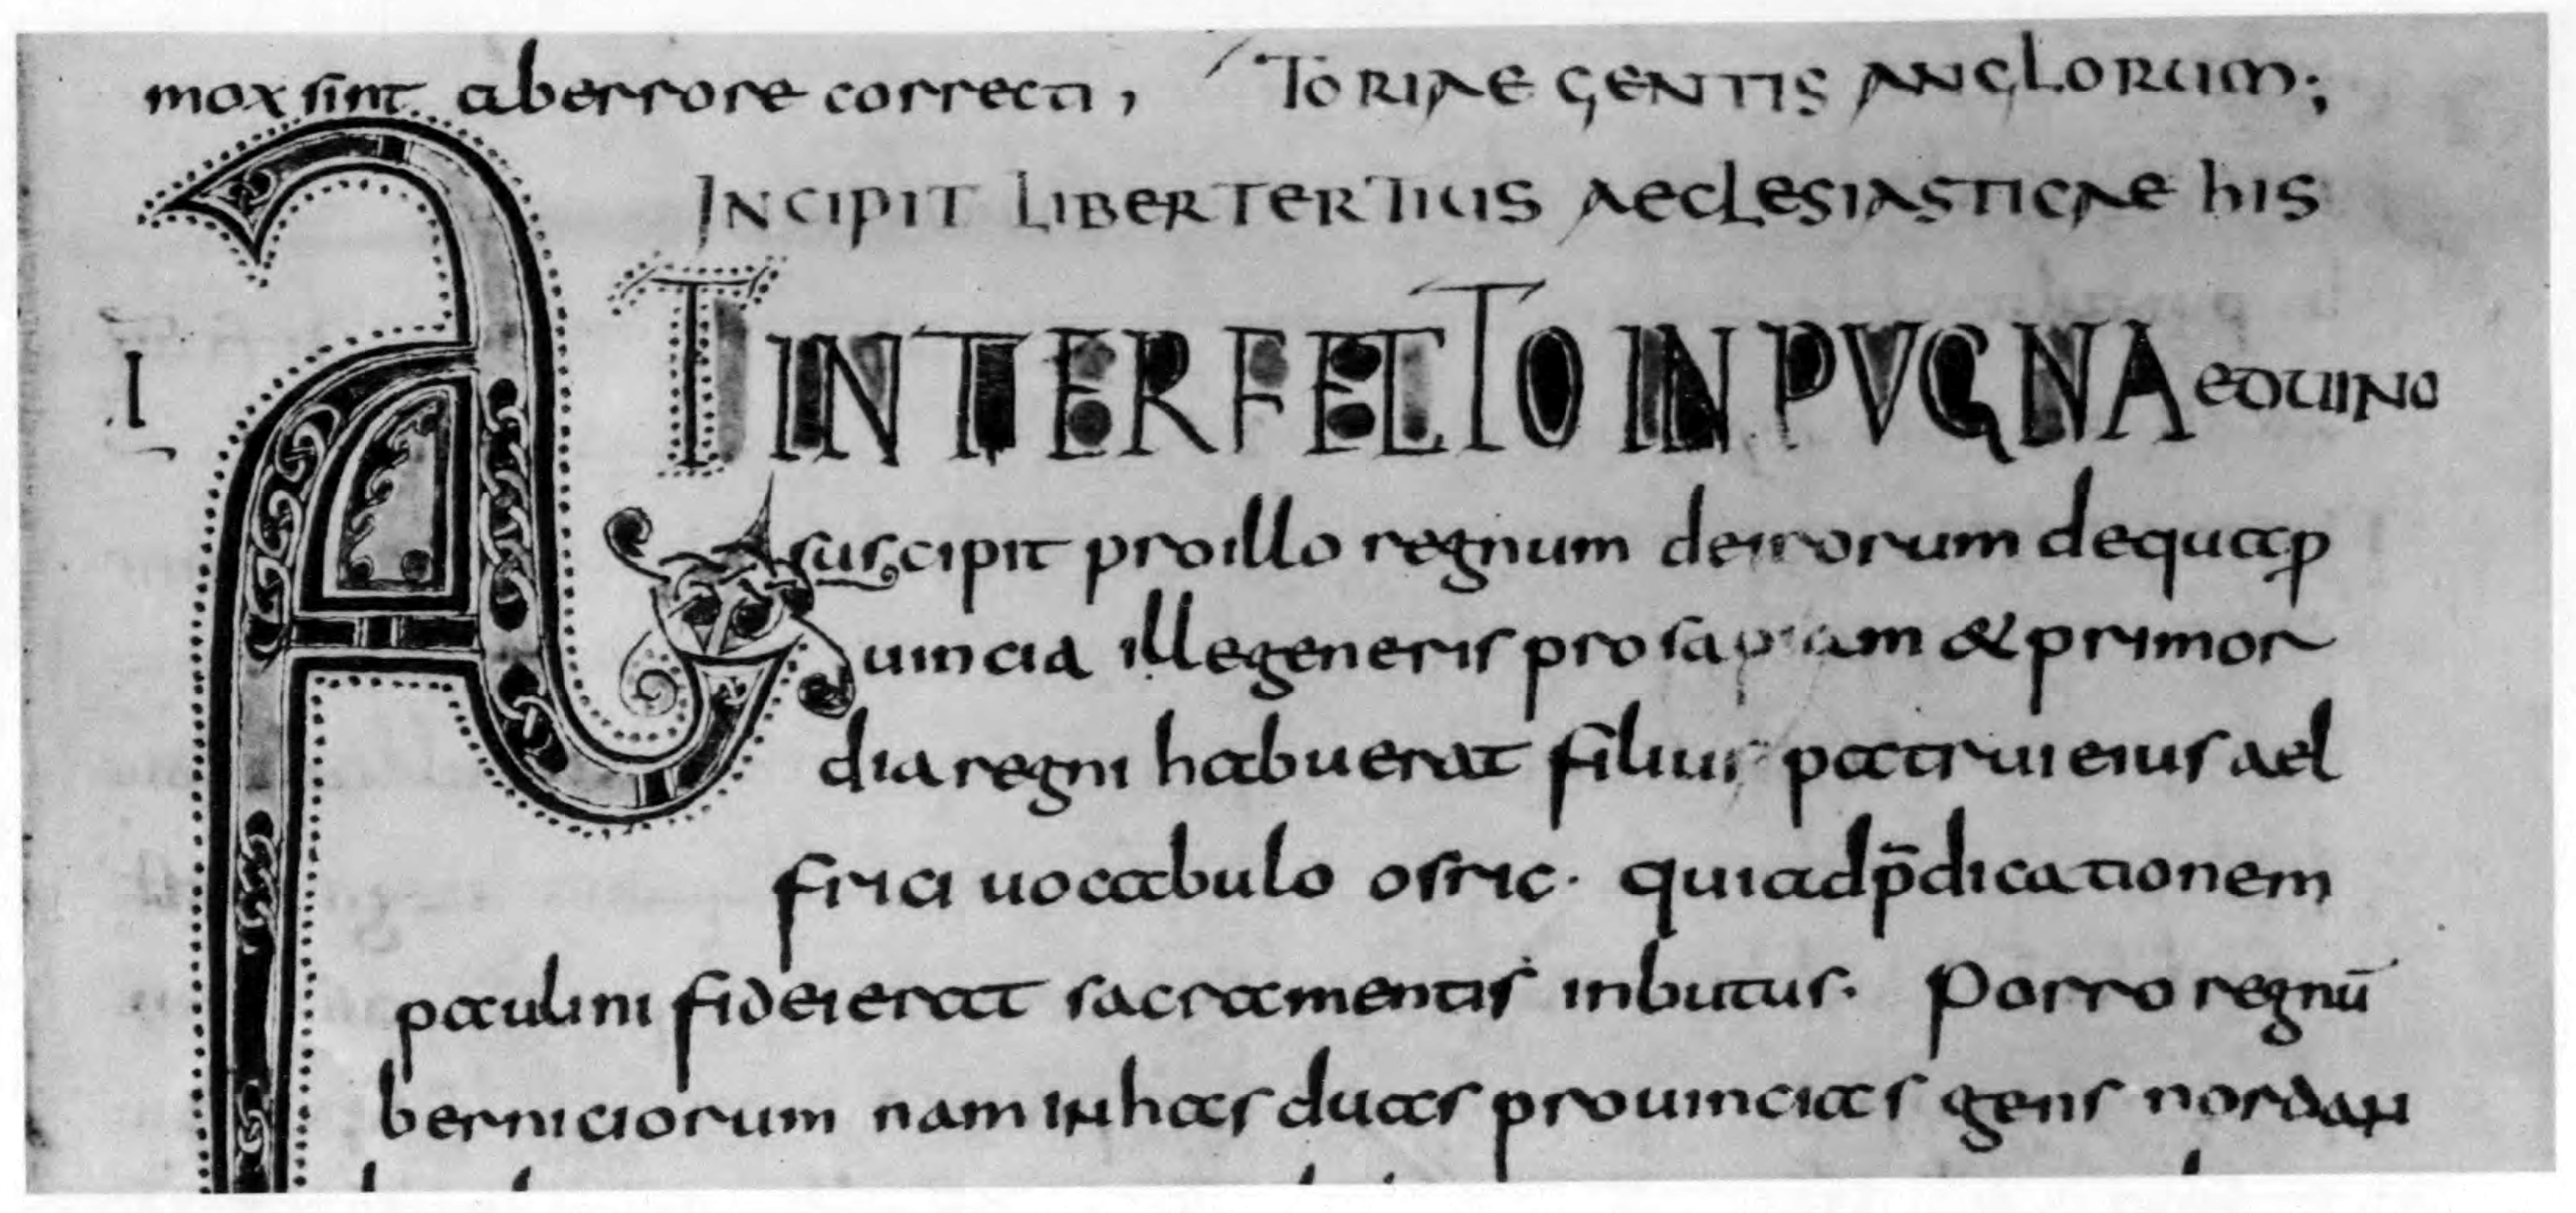 mox sint ab errore correcti, TORIAE GENTIS ANGLORUM;
INCIPIT LIBER TERTIUS AECLESIASTICAE HIS
I
AT INTERFECTO IN PVGNA EDUINO
suscipit pro illo regnum deirorum de qua p
uincia ille generis prosapiam & primor
dia regni habuerat filius patrui eius ael
frici uocabulo osric. qui ad p̄dicationem
paulini fidei erat sacramentis inbutus. Porro regnū
berniciorum nam in has duas prouincias gens nordan